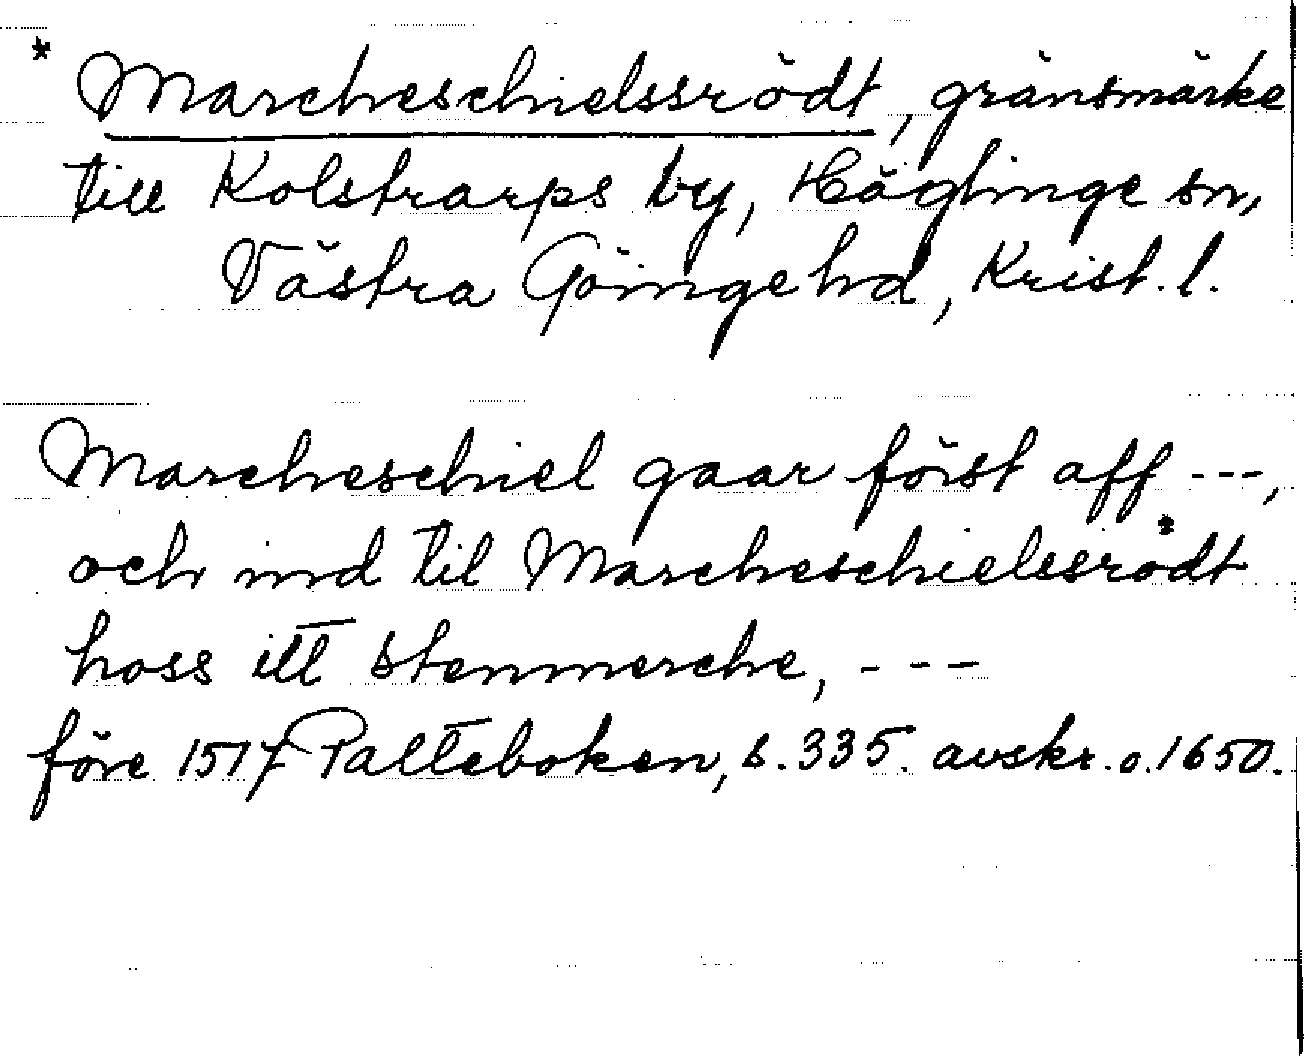 * Marcheschielssrödt, gränsmärke
till Kolstrarps by, Häglinge sn,
Västra Göingehd, Krist. l.
Marcheschiel gaar först aff ---,
och ind til Marcheschielssrödt*
hoss itt stenmerche, ---
före 1517 Palteboken, s. 335. avskr. o. 1650.